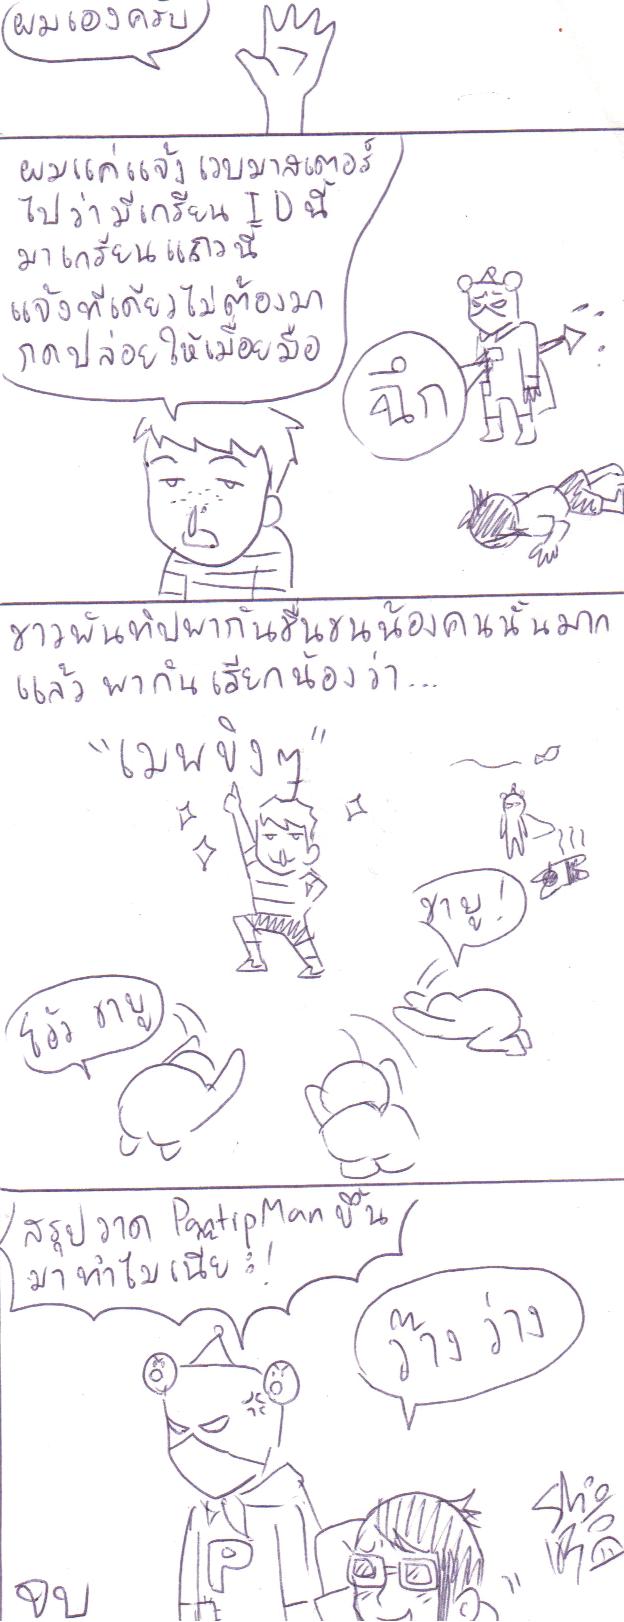 ผมเองครับ
ผมแค่แจ้งเวบมาสเตอร์
ไปว่ามีเกรียน ID นี้
มาเกรียนแถวนี้
แจ้งทีเดียวไม่ต้องมา
กดปล่อยให้เมื่อยมือ
ฉึก
ชาวพันทิปพากันชื่นชมน้องคนนั้นมาก
แล้วพากันเรียกน้องว่า...
"เมพขิงๆ"
ชาบู!
โอ้ว ชาบู
สรุปวาด PantipMan ขึ้น
มาทำไมเนี่ยะ!
ว๊าง ว่าง
P
จบ